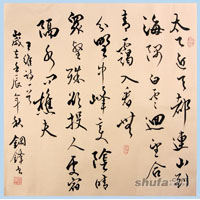 太乙近天都連山到
海隅白雲迴望合
青靄入看無
分野中峰變陰晴
眾壑殊欲投人處宿
隔水問樵夫
王維詩
歲在壬辰年秋
shufa